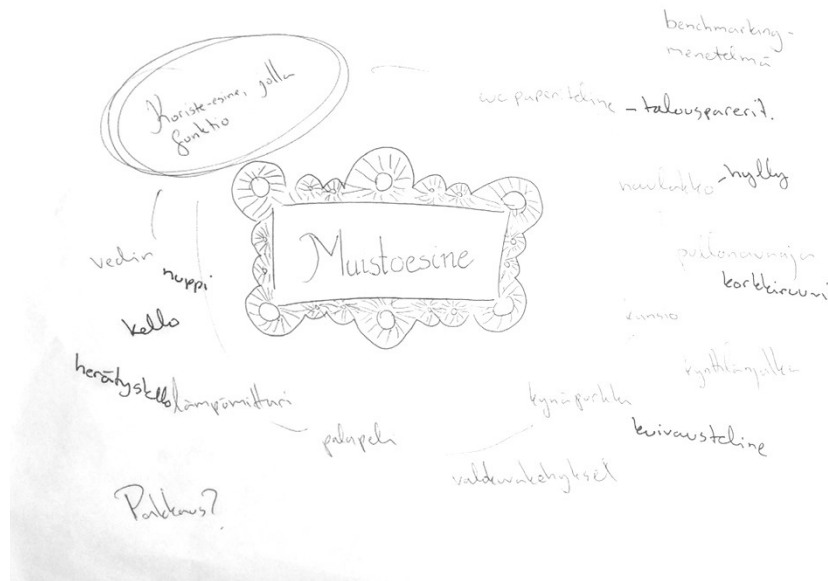 benchmarking-
menetelmä
Koriste-esine, jolla
funktio
wc paperiteline – talouspaperit.
naulakko – hylly
Muistoesine
pullonavaaja
korkkiruuvi
vedin
nuppi
kello
kansio
herätyskello
lämpömittari
kynttilänjalka
kynäpurkki
kuivausteline
palapeli
valokuvakehykset
Pakkaus?